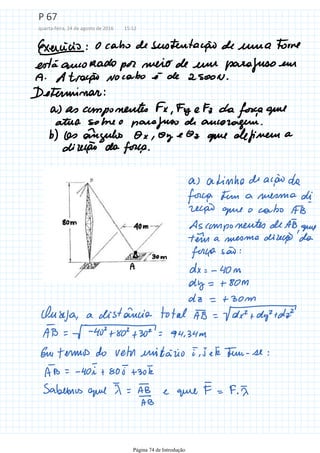 P 67
quarta-feira, 24 de agosto de 2016 15:12
Exercício: O cabo de sustentação de uma torre
está ancorado por meio de um parafuso em
A. A tração no cabo é de 2500N.
Determinar:
a) as componentes Fx, Fy e Fz da força que
atua sobre o parafuso de ancoragem.
b) os ângulos θx, θy e θz que definem a
direção da força.
B
80m
40m
30m
A
a) a linha de ação da
força tem a mesma di
reção que o cabo AB
As componentes de AB, que
têm a mesma direção da
força são:
dx = - 40m
dy = + 80m
dz = + 30m
Ou seja, a distância total AB = √dx²+dy²+dz²
AB = √-40²+80²+30² = 94,34m
Em termos do vetor unitário i, j e k tem-se:
AB = -40i + 80j +30k
Sabemos que λ = AB/AB e que F = F.λ
Página 74 de Introdução